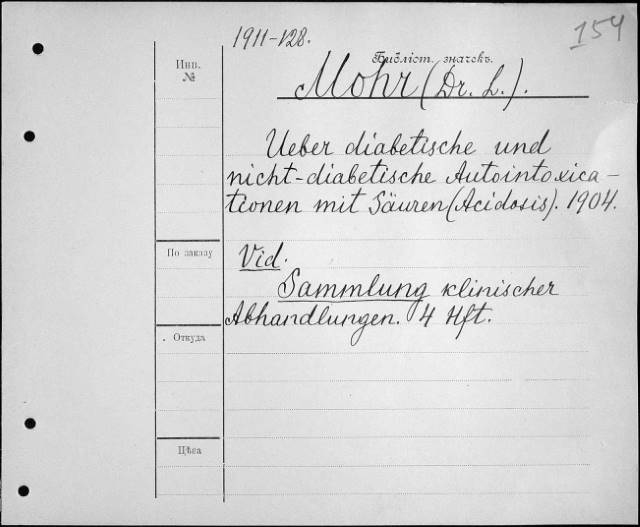 1911-128.
154
Библіот. значекъ.
Инв.
№
Mohr (Dr. L.).
Ueber diabetische und
nicht-diabetische Autointoxica-
tionen mit Säuren (Acidosis). 1904.
По заказу
Vid.
Sammlung klinischer
Abhandlungen. 4 Hft.
Откуда
Цѣна